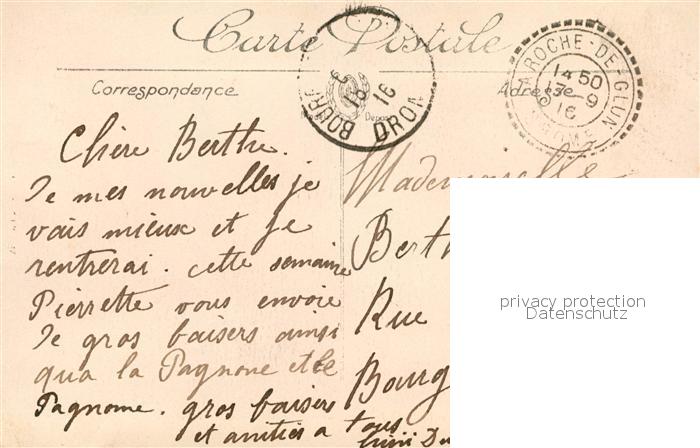 Carte Postale
Correspondance
Adresse
LA ROCHE-DE-GLUN
14 50
17-9
16
DROME
BOURG
DROM
16
Chère Berthe.
De mes nouvelles je
vais mieux et je
rentrerai. cette semaine
Pierrette vous envoie
De gros baisers ainsi
qua la Pagnone et le
Pagnome. gros baisers
et amitiés a tous
Mademoiselle
Berth
Rue
Bourg
privacy protection
Datenschutz